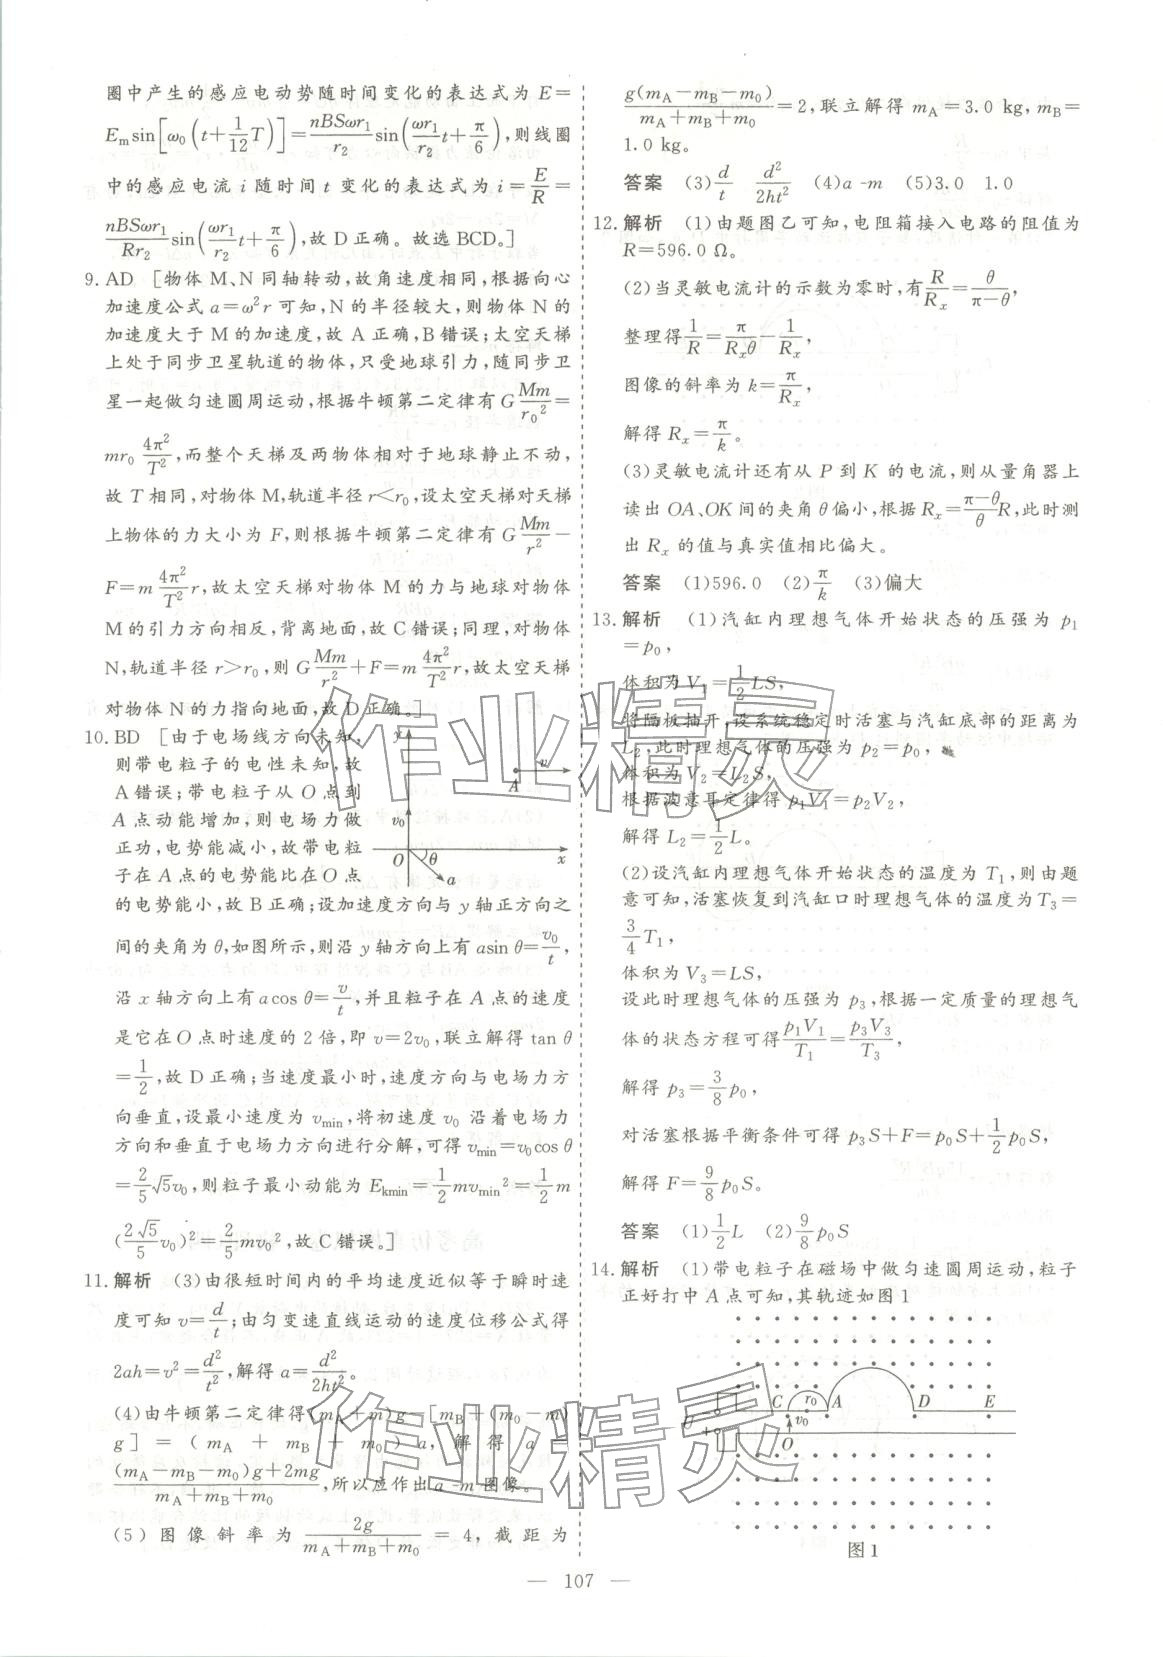 圈中产生的感应电动势随时间变化的表达式为 E=
E_m sin[ω₀(t+1/12 T)]=nBSωr₁/r₂ sin(ωr₁/r₂ t+π/6),则线圈
中的感应电流 i 随时间 t 变化的表达式为 i=E/R=
nBSωr₁/Rr₂ sin(ωr₁/r₂ t+π/6),故 D 正确。故选 BCD。]
9. AD [物体 M、N 同轴转动,故角速度相同,根据向心
加速度公式 a=ω²r 可知,N 的半径较大,则物体 N 的
加速度大于 M 的加速度,故 A 正确,B 错误;太空天梯
上处于同步卫星轨道的物体,只受地球引力,随同步卫
星一起做匀速圆周运动,根据牛顿第二定律有 G Mm/r₀²=
mr₀ 4π²/T²,而整个天梯及两物体相对于地球静止不动,
故 T 相同,对物体 M,轨道半径 r<r₀,设太空天梯对天梯
上物体的力大小为 F,则根据牛顿第二定律有 G Mm/r²−
F=m 4π²/T² r,故太空天梯对物体 M 的力与地球对物体
M 的引力方向相反,背离地面,故 C 错误;同理,对物体
N,轨道半径 r>r₀,则 G Mm/r²+F=m 4π²/T² r,故太空天梯
对物体 N 的力指向地面,故 D 正确。]
10. BD [由于电场线方向未知,
则带电粒子的电性未知,故
A 错误;带电粒子从 O 点到
A 点动能增加,则电场力做
正功,电势能减小,故带电粒
子在 A 点的电势能比在 O 点
y
v
A
v₀
O
θ
x
a
的电势能小,故 B 正确;设加速度方向与 y 轴正方向之
间的夹角为 θ,如图所示,则沿 y 轴方向上有 asin θ=v₀/t,
沿 x 轴方向上有 acos θ=v/t,并且粒子在 A 点的速度
是它在 O 点时速度的 2 倍,即 v=2v₀,联立解得 tan θ
=1/2,故 D 正确;当速度最小时,速度方向与电场力方
向垂直,设最小速度为 v_min,将初速度 v₀ 沿着电场力
方向和垂直于电场力方向进行分解,可得 v_min=v₀cos θ
=2/5 √5 v₀,则粒子最小动能为 E_kmin=1/2 mv_min²=1/2 m
(2√5/5 v₀)²=2/5 mv₀²,故 C 错误。]
11. 解析 (3)由很短时间内的平均速度近似等于瞬时速
度可知 v=d/t;由匀变速直线运动的速度位移公式得
2ah=v²=d²/t²,解得 a=d²/2ht²。
(4)由牛顿第二定律得(m_A+m)g−[m_B+(m₀−m)
g]=(m_A+m_B+m₀)a,解得 a=
(m_A−m_B−m₀)g+2mg/m_A+m_B+m₀,所以应作出 a-m 图像。
(5)图像斜率为 2g/m_A+m_B+m₀=4,截距为
g(m_A−m_B−m₀)/m_A+m_B+m₀=2,联立解得 m_A=3.0 kg,m_B=
1.0 kg。
答案 (3)d/t d²/2ht² (4)a-m (5)3.0 1.0
12. 解析 (1)由题图乙可知,电阻箱接入电路的阻值为
R=596.0 Ω。
(2)当灵敏电流计的示数为零时,有R/Rₓ=θ/π−θ,
整理得1/R=π/Rₓθ−1/Rₓ,
图像的斜率为 k=π/Rₓ,
解得 Rₓ=π/k。
(3)灵敏电流计还有从 P 到 K 的电流,则从量角器上
读出 OA、OK 间的夹角 θ 偏小,根据 Rₓ=π−θ/θ R,此时测
出 Rₓ 的值与真实值相比偏大。
答案 (1)596.0 (2)π/k (3)偏大
13. 解析 (1)汽缸内理想气体开始状态的压强为 p₁
=p₀,
体积为 V₁=1/2 LS,
将隔板抽开,设系统稳定时活塞与汽缸底部的距离为
L₂,此时理想气体的压强为 p₂=p₀,
体积为 V₂=L₂S,
根据波意耳定律得 p₁V₁=p₂V₂,
解得 L₂=1/2 L。
(2)设汽缸内理想气体开始状态的温度为 T₁,则由题
意可知,活塞恢复到汽缸口时理想气体的温度为 T₃=
3/4 T₁,
体积为 V₃=LS,
设此时理想气体的压强为 p₃,根据一定质量的理想气
体的状态方程可得p₁V₁/T₁=p₃V₃/T₃,
解得 p₃=3/8 p₀,
对活塞根据平衡条件可得 p₃S+F=p₀S+1/2 p₀S,
解得 F=9/8 p₀S。
答案 (1)1/2 L (2)9/8 p₀S
14. 解析 (1)带电粒子在磁场中做匀速圆周运动,粒子
正好打中 A 点可知,其轨迹如图 1
C
r₀
A
D
E
U
−
+
v₀
O
图 1
— 107 —
作业精灵
作业精灵